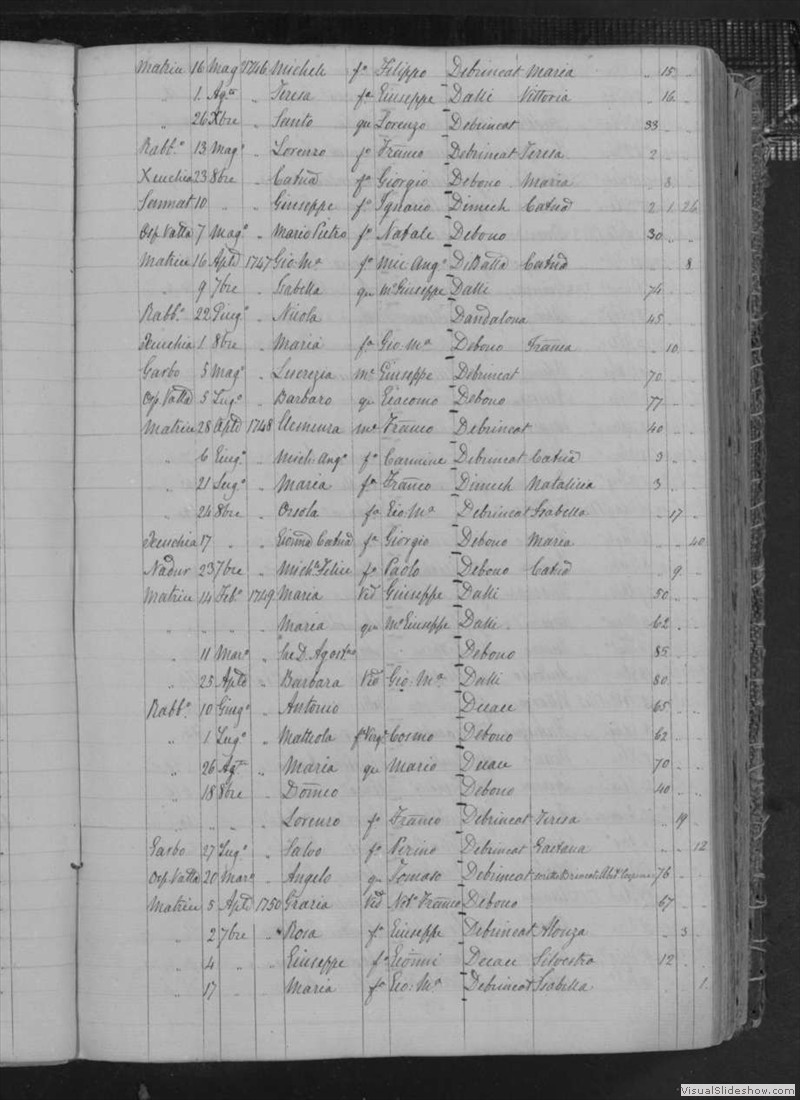 Matrice 16 Magº 1746 Michele fº Filippo Debrincat Maria .. 15 ..
.. 1. Agto .. Teresa fª Giuseppe Dalli Vittoria .. 16 ..
.. 26 Xbre .. Santo qu Lorenzo Debrincat 33 .. ..
Rabbº 13 Magº .. Lorenzo fº Franco Debrincat Teresa 2 .. ..
Xeuchia 23 8bre .. Catnã fª Giorgio Debono Maria .. 8 ..
Sannat 10 .. .. Giuseppe fº Ignazio Dimech Catnã 2 1 26
Osp Vallta 7 Magº .. Mario Pietro fº Natale Debono 30 .. ..
Matrice 16 Aple 1747 Gio Mª fº Mic Angº DiBatta Catnã .. .. 8
.. 9 7bre .. Isabella qu Mº Giuseppe Dalli 74 .. ..
Rabbº 22 Giugº .. Nicola Dandalona 45 .. ..
Xeuchia 1 8bre .. Maria fª Gio Mª Debono Franca .. 10 ..
Garbo 3 Magº .. Lucrezia Mº Giuseppe Debrincat 70 .. ..
Osp Vallta 5 Lugº .. Barbaro qu Giacomo Debono 77 .. ..
Matrice 28 Aple 1748 Clemenza mº Franco Debrincat 40 .. ..
.. 6 Giugº .. Mich: Angº fº Carmine Debrincat Catnã 3 .. ..
.. 21 Lugº .. Maria fª Franco Dimech Natalizia 3 .. ..
.. 24 8bre .. Orsola fª Gio Mª Debrincat Isabella .. 17 ..
Xeuchia 17 .. .. Catnã fª Giorgio Debono Maria .. .. 40
Nadur 23 7bre .. Michª Felice fª Paolo Debono Catnã .. 9 ..
Matrice 14 Febº 1749 Maria Ved Giuseppe Dalli 50 .. ..
.. .. .. .. Maria qu Mº Giuseppe Dalli 62 .. ..
.. 11 Marº .. Sac D. Agostno Debono 85 .. ..
.. 23 Aple .. Barbara Ved Gio: Mª Dalli 80 .. ..
Rabbº 10 Giugº .. Antonio Decace 65 .. ..
.. 1 Lugº .. Matteola fª Vergª Cosmo Debono 62 .. ..
.. 26 Agto .. Maria qu Mario Decace 70 .. ..
.. 18 8bre .. Domco Debono 40 .. ..
.. .. .. .. Lorenzo fº Franco Debrincat Teresa .. 19 ..
Garbo 27 Lugº .. Salvo fº Perino Debrincat Gaetana .. .. 12
Osp Vallta 20 Marº .. Angelo qu Tomaso Debrincat 76 .. ..
Matrice 5 Aple 1750 Grazia Ved Notº Franco Debono 67 .. ..
.. 2 7bre .. Rosa fª Giuseppe Debrincat Alonza .. 3 ..
.. 4 .. .. Giuseppe fº Gionni Decace Silvestra 12 .. ..
.. 17 .. .. Maria fª Gio: Mª Debrincat Isabella .. .. 1
VisualSlideshow.com